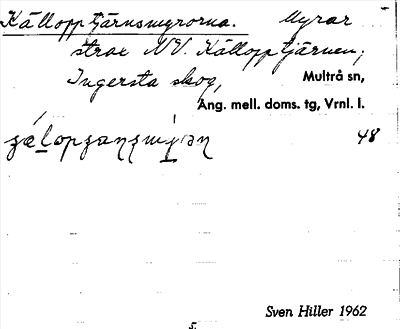 Källopptjärnsmyrorna. Myrar
strax NV. Källopptjärnen;
Ingersta skog, Multrå sn,
Ång. mell. doms. tg, Vrnl. l.
48
Sven Hiller 1962
5.